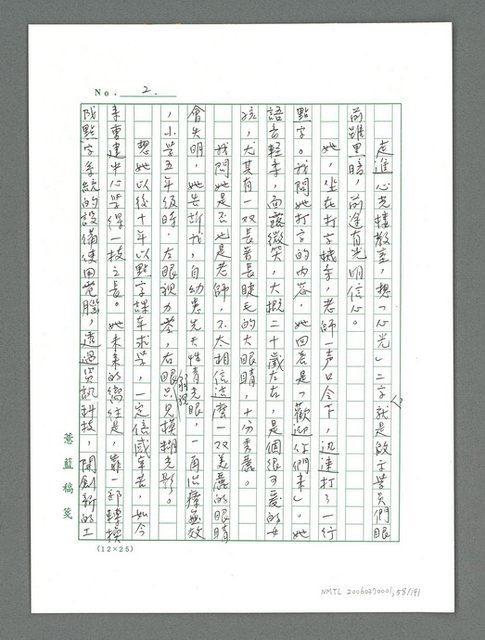 No. 2.
走進心光播教室，想「心光」二字就是啟字學員們眼
前雖黑暗，前途有光明信心。
她，坐在打字機旁，老師一声口令下，迅速打了一行
點字。我問她打字的內容，她回答是「歡迎你們來」。她
語音輕柔，面露微笑，大概二十歲左右，是個很可愛的女
孩，尤其有一双長著長睫毛的大眼睛，十分秀麗。
我問她是否也是老師，不太相信這麼一双美麗的眼睛
會失明，她告訴我，自幼患先天性青光眼，一再治療無效
，小学五年級時，左眼視力茫，右眼只見模糊光影。
想她以後十年以點字課本求学，一定倍感辛苦，如今
來重建中心学得一技之長。她未來的嚮往是，靠一部轉換
成點字系統的設備使用電腦，透過資訊科技，開創新的工
蕃藍稿箋
(12×25)
NMTL 20060370001, 58/191